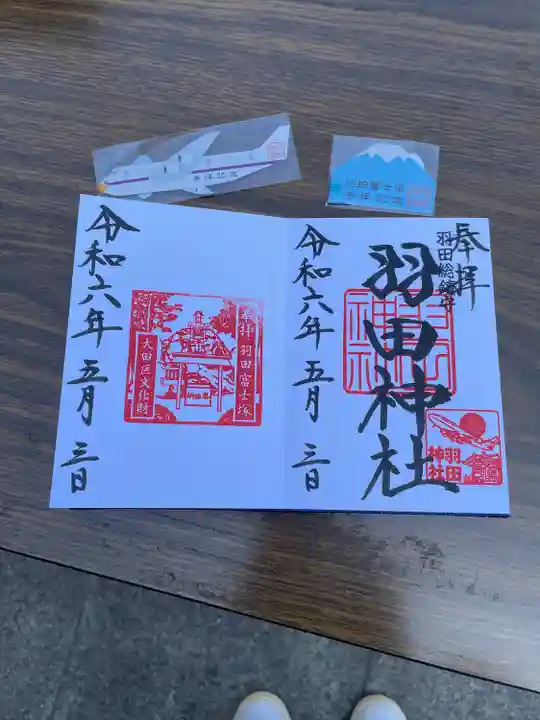 参拝記念
羽田富士塚
参拝記念
奉拝
羽田総鎮守
羽田神社
令和六年五月三日
羽田神社
奉拝 羽田富士塚
大田区文化財
令和六年五月三日